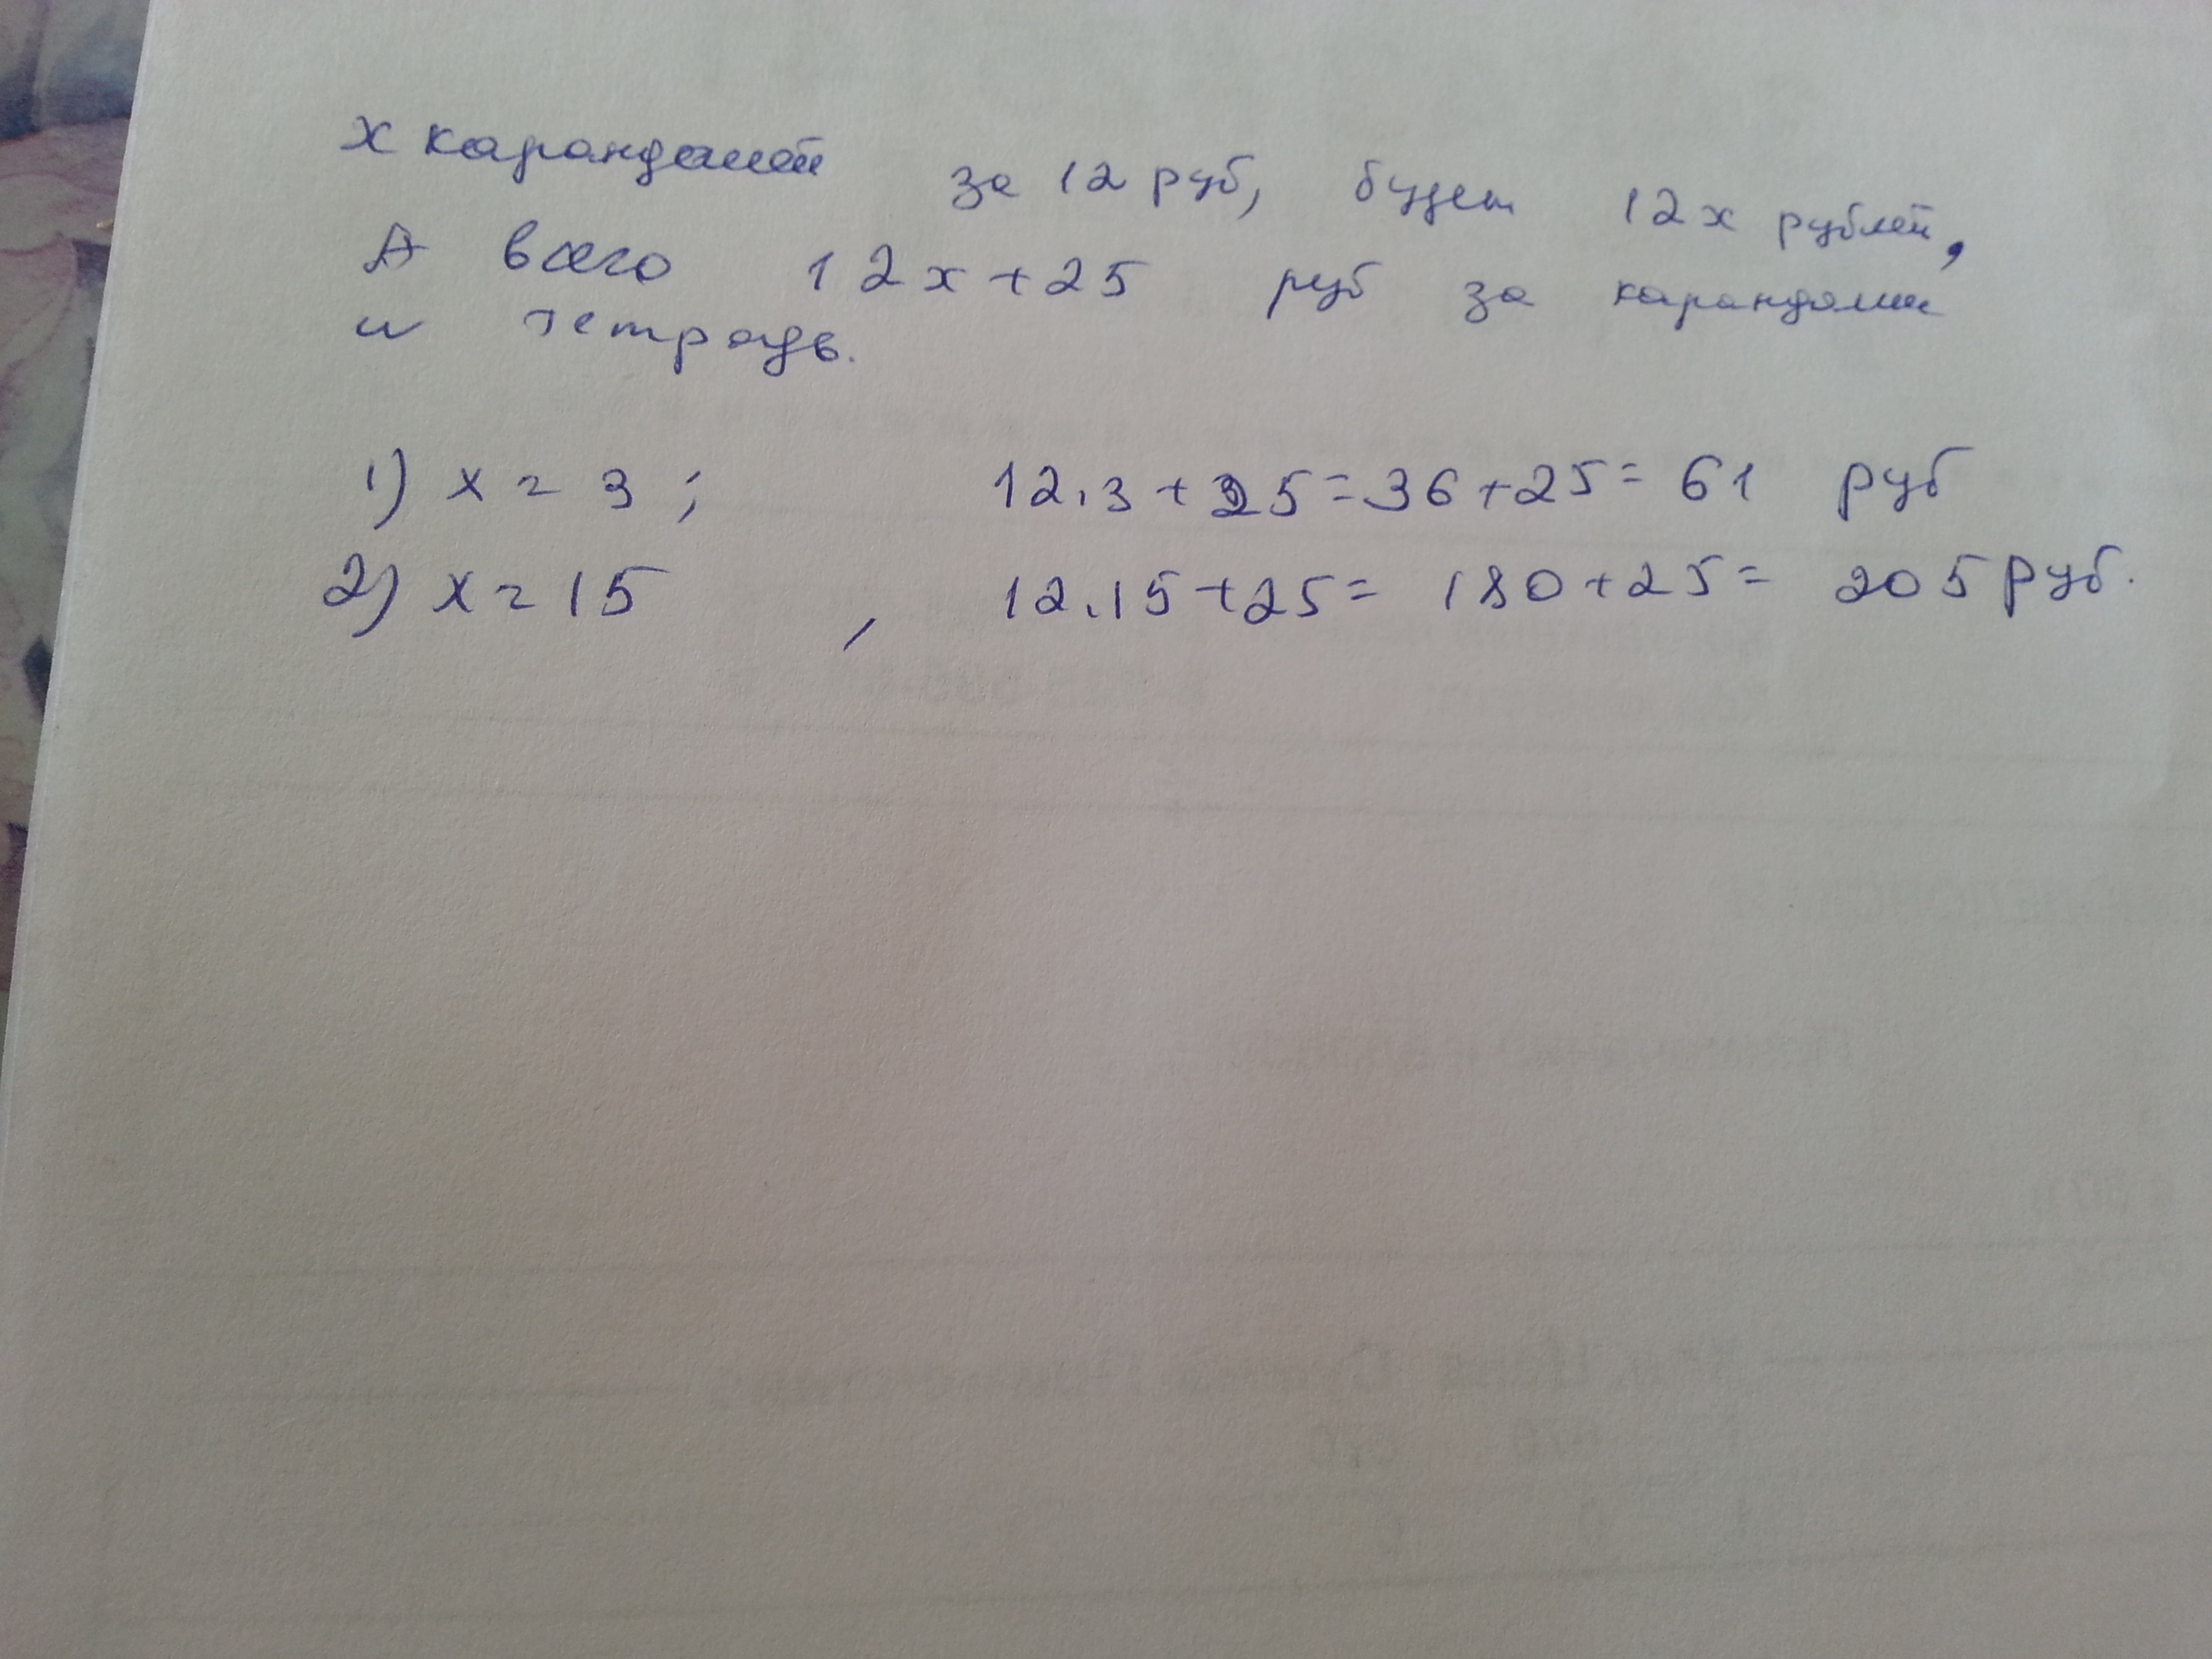 х карандашей за 12 руб, будет 12х рублей,
А всего 12х+25 руб за карандаши
и тетрадь.
1) х = 3 ; 12.3+25=36+25= 61 руб
2) х=15 , 12.15+25= 180+25= 205 руб.